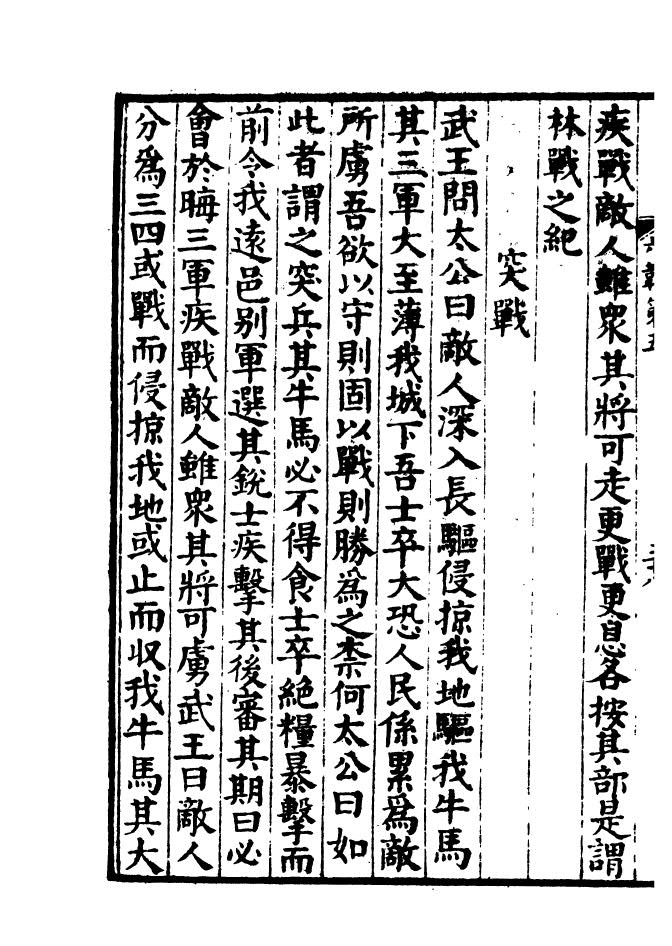 疾戰敵人雖衆其將可走更戰更息各按其部是謂
林戰之紀
突戰
武王問太公曰敵人深入長驅侵掠我地驅我牛馬
其三軍大至薄我城下吾士卒大恐人民係累爲敵
所虜吾欲以守則固以戰則勝爲之柰何太公曰如
此者謂之突兵其牛馬必不得食士卒絶糧暴擊而
前令我遠邑别軍選其銳士疾擊其後審其期日必
會於晦三軍疾戰敵人雖衆其將可虜武王曰敵人
分爲三四或戰而侵掠我地或止而収我牛馬其大